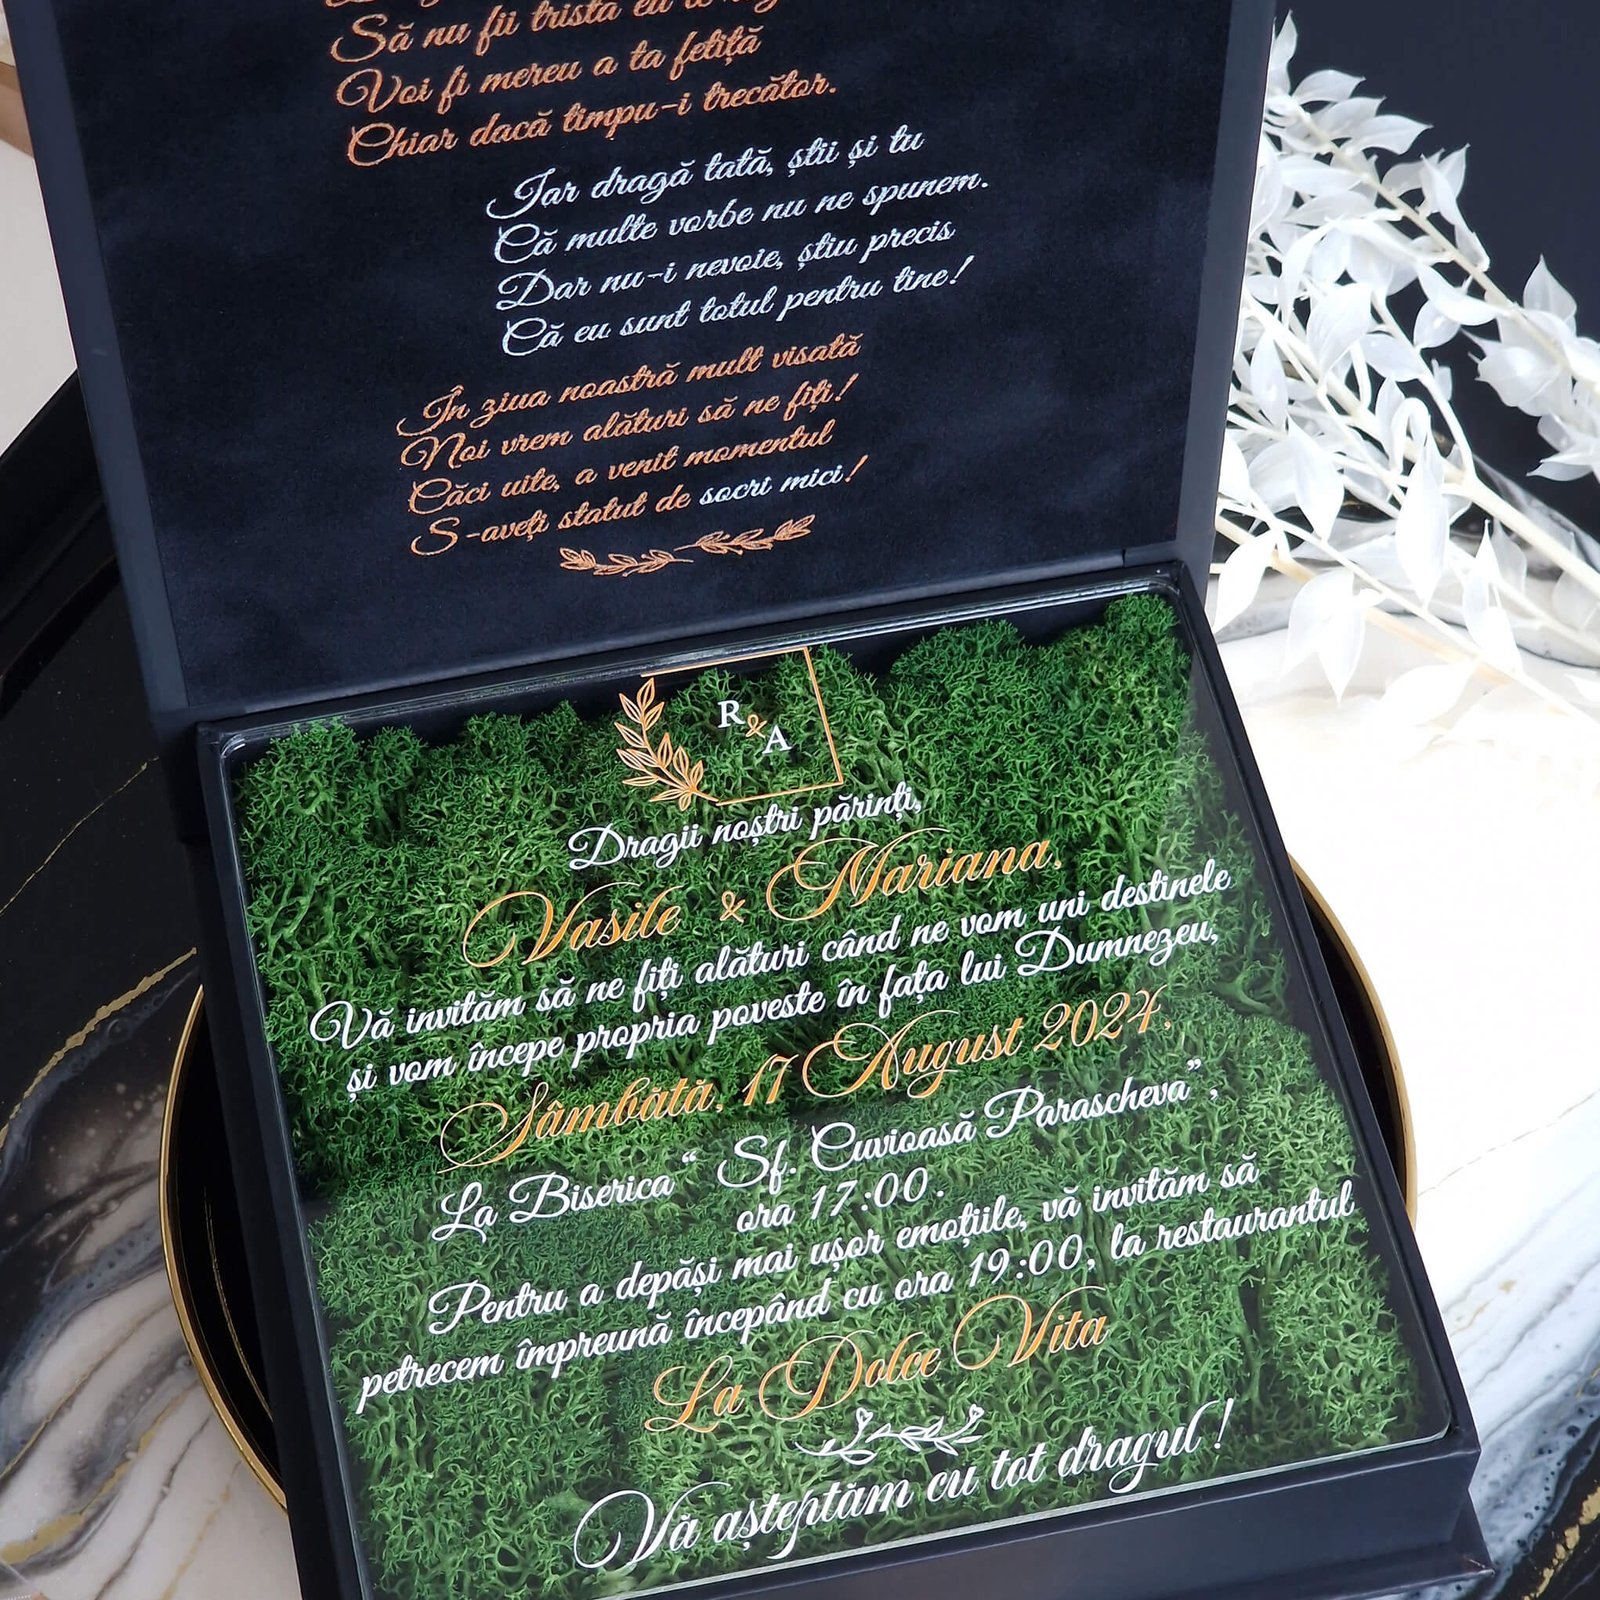 Să nu fii tristă
Voi fi mereu a ta fetiță
Chiar dacă timpu-i trecător.
Iar dragă tată, știi și tu
Că multe vorbe nu ne spunem.
Dar nu-i nevoie, știu precis
Că eu sunt totul pentru tine!
În ziua noastră mult visată
Noi vrem alături să ne fiți!
Căci uite, a venit momentul
S-aveți statut de socri mici!
R
&
A
Dragii noștri părinți,
Vasile & Mariana,
Vă invităm să ne fiți alături când ne vom uni destinele
și vom începe propria poveste în fața lui Dumnezeu,
Sâmbătă, 17 August 2024,
La Biserica “ Sf. Cuvioasă Parascheva”,
ora 17:00.
Pentru a depăși mai ușor emoțiile, vă invităm să
petrecem împreună începând cu ora 19:00, la restaurantul
La Dolce Vita
Vă așteptăm cu tot dragul!